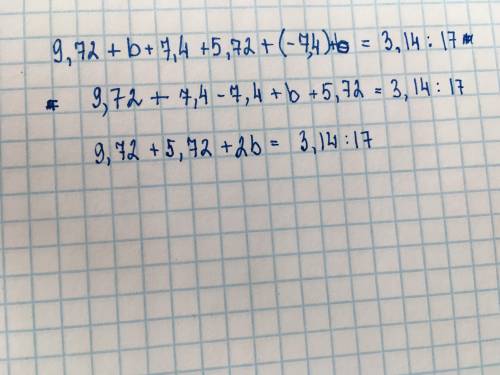 9,72 + b + 7,4 + 5,72 + (-7,4) + b = 3,14 : 17 =
= 9,72 + 7,4 - 7,4 + b + 5,72 = 3,14 : 17
9,72 + 5,72 + 2b = 3,14 : 17